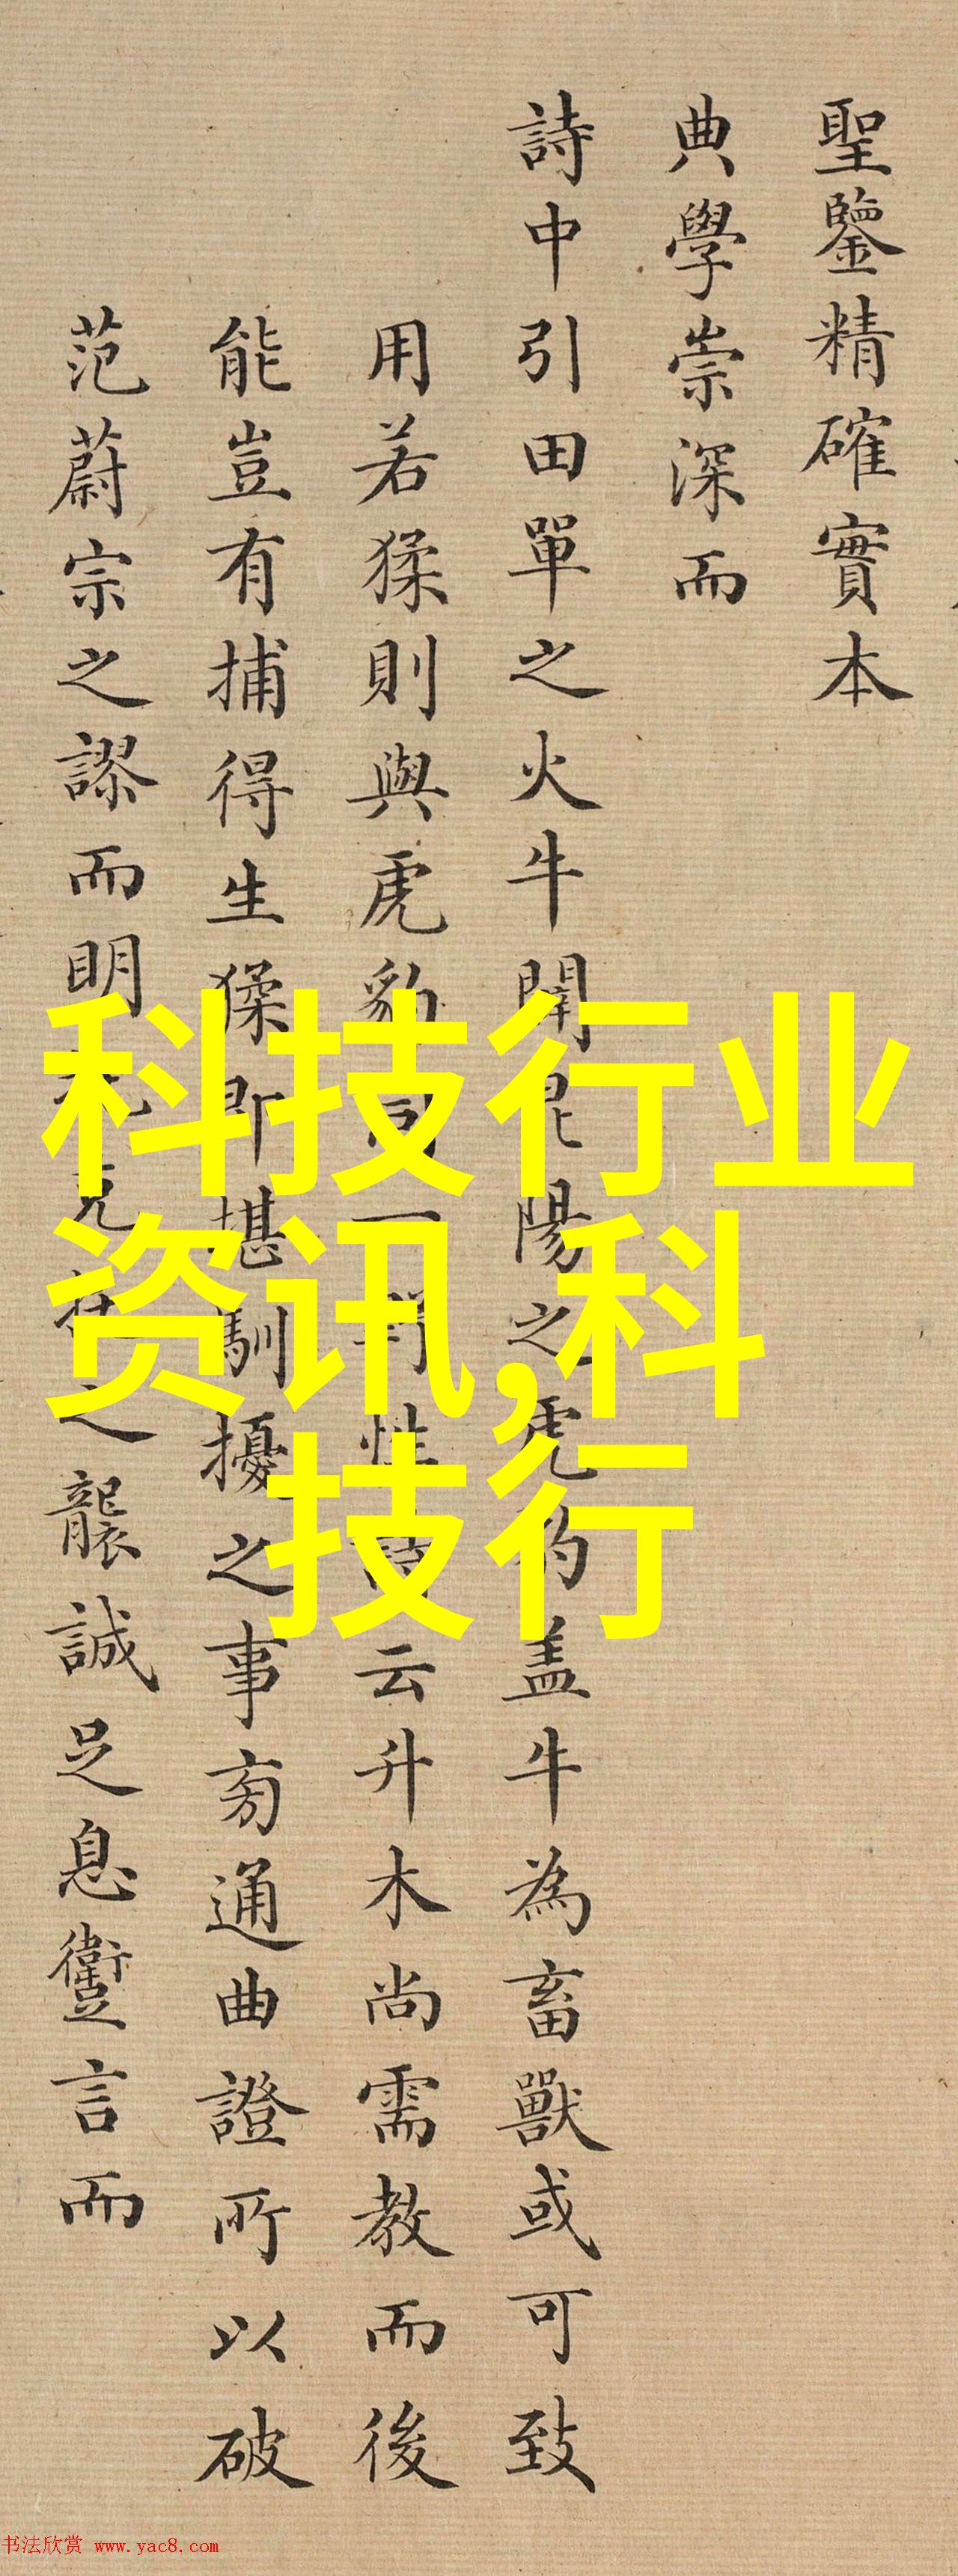 聖鑒精確實本
典學崇深而
詩中引田單之火牛昆陽之虎豹盖牛為畜獸或可致
用若猱則與虎豹同一野性詩云升木尚需教而後
能豈有捕得生猱即堪馴擾之事旁通曲證所以破
范蔚宗之謬而明克之襲誠足息言而
科技行业
资讯,科
技行
书法欣赏 www.yac8.com